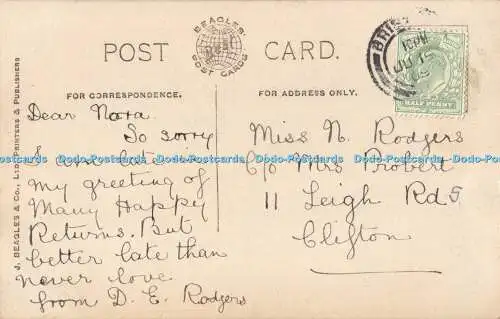 POST CARD.
BEAGLES'
POST CARDS
FOR CORRESPONDENCE.
FOR ADDRESS ONLY.
J. BEAGLES & CO., LTD., PRINTERS & PUBLISHERS
Dear Nora.
So sorry
I am late
my greeting of
Many Happy
Returns. But
better late than
never love
from D. E. Rodgers
Miss N. Rodgers
C/o Mrs Probert
11 Leigh Rd S.
Clifton
HALF PENNY
Dodo-Postcards Dodo-Postcards Dodo-Postcards Dodo-Postcards